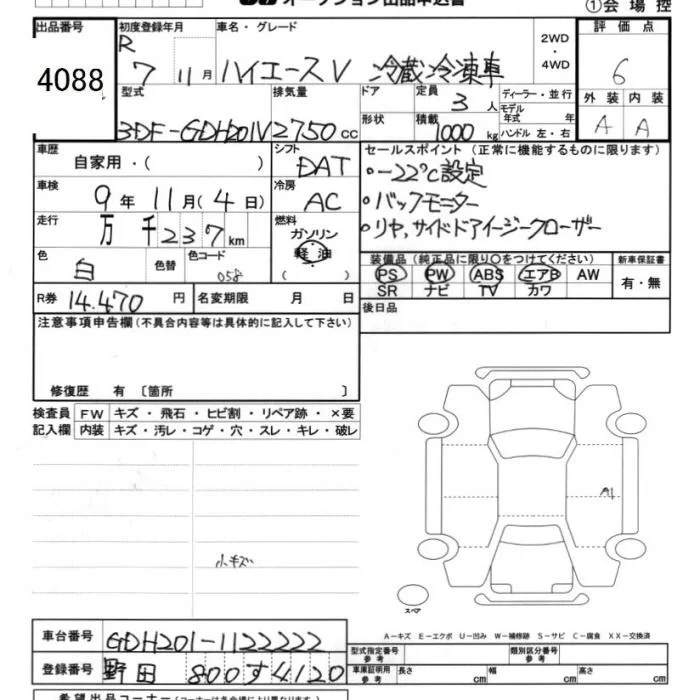 オークション出品申込書
①会場控
出品番号
4088
初度登録年月
R 7 11月
車名・グレード
ハイエースV 冷蔵冷凍車
2WD
・
4WD
評価点
6
外装 内装
A A
型式
3DF-GDH201V
排気量
2750 cc
ドア
形状
定員
3人
積載
1000 kg
ディーラー・並行
モデル
年式 年
ハンドル 左・右
車歴
自家用・( )
シフト
DAT
車検
9年11月(4日)
冷房
AC
走行
万千237km
燃料
ガソリン
軽油
( )
色
白
色替
色コード
058
R券 14.470 円
名変期限 月 日
セールスポイント (正常に機能するものに限ります)
・-22℃設定
・バックモニター
・リヤ,サイドドアイージークローザー
装備品 (純正品に限り○をつけてください)
PS PW ABS エアB AW
SR ナビ TV カワ
新車保証書
有・無
後日品
注意事項申告欄 (不具合内容等は具体的に記入して下さい)
修復歴 有 〔箇所 〕
検査員
記入欄
FW キズ・飛石・ヒビ割・リペア跡・×要
内装 キズ・汚レ・コゲ・穴・スレ・キレ・破レ
小キズ
A1
スペア
A-キズ E-エクボ U-凹み W-補修跡 S-サビ C-腐食 XX-交換済
車台番号 GDH201-1122222
登録番号 野田 800す4120
型式指定番号
参考
類別区分番号
参考
車庫証明用
参考
長さ cm 幅 cm 高さ cm
希望出品コーナー